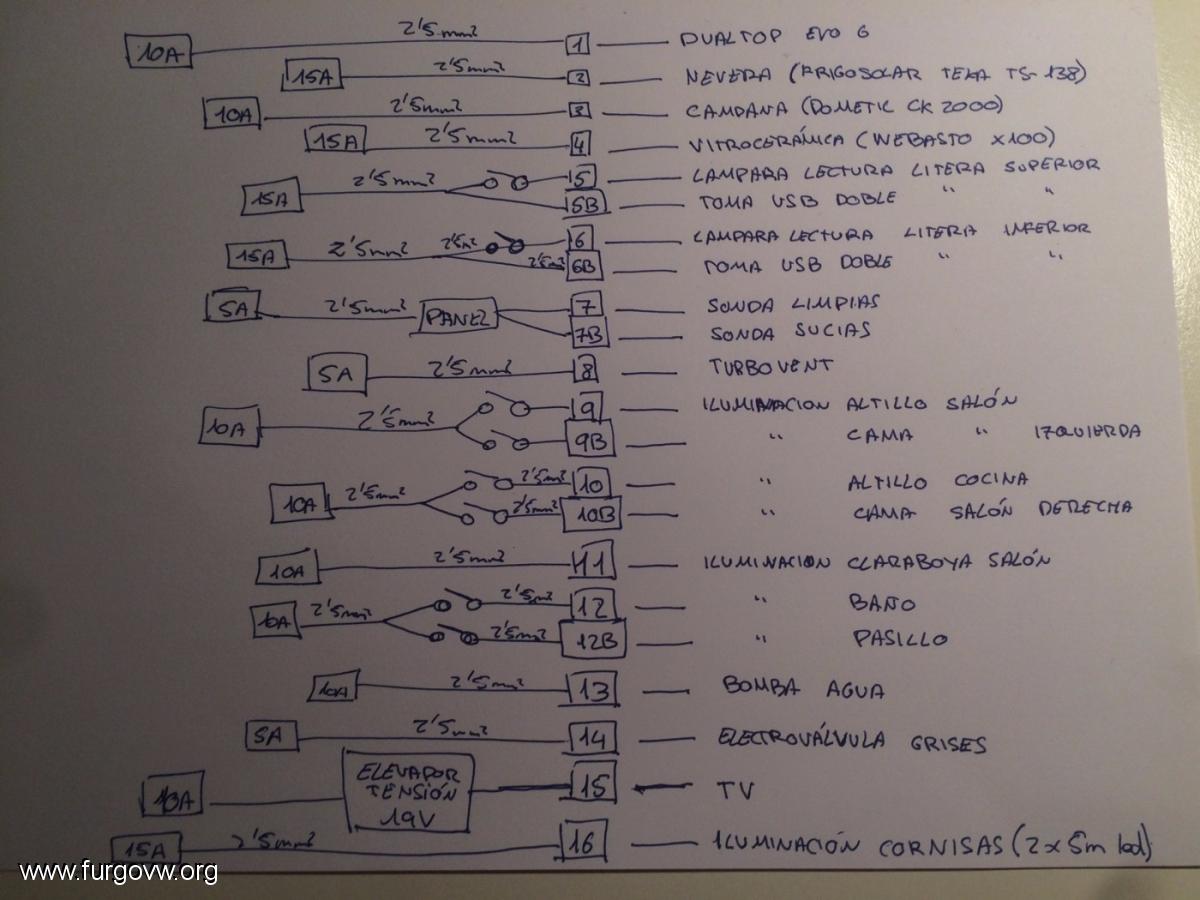 10A 2'5mm² 1 DUALTOP EVO 6
15A 2'5mm² 2 NEVERA (FRIGOSOLAR TEKA TS-138)
10A 2'5mm² 3 CAMPANA (DOMETIC CK2000)
15A 2'5mm² 4 VITROCERÁMICA (WEBASTO X100)
5 LAMPARA LECTURA LITERA SUPERIOR
15A 2'5mm² 5B TOMA USB DOBLE " "
2'5m² 6 LAMPARA LECTURA LITERA INFERIOR
15A 2'5mm² 2'5m² 6B TOMA USB DOBLE " "
5A 2'5mm² PANEL 7 SONDA LIMPIAS
7B SONDA SUCIAS
5A 2'5mm² 8 TURBOVENT
9 ILUMINACION ALTILLO SALÓN
10A 2'5mm² 9B " CAMA " IZQUIERDA
2'5mm² 10 " ALTILLO COCINA
10A 2'5mm² 2'5mm² 10B " CAMA SALÓN DERECHA
10A 2'5mm² 11 ILUMINACION CLARABOYA SALÓN
2'5mm² 12 " BAÑO
10A 2'5mm² 2'5mm² 12B " PASILLO
10A 2'5mm² 13 BOMBA AGUA
5A 2'5mm² 14 ELECTROVÁLVULA GRISES
10A ELEVADOR
TENSIÓN
19V 15 TV
15A 2'5mm² 16 ILUMINACIÓN CORNISAS (2x5m led)
www.furgovw.org